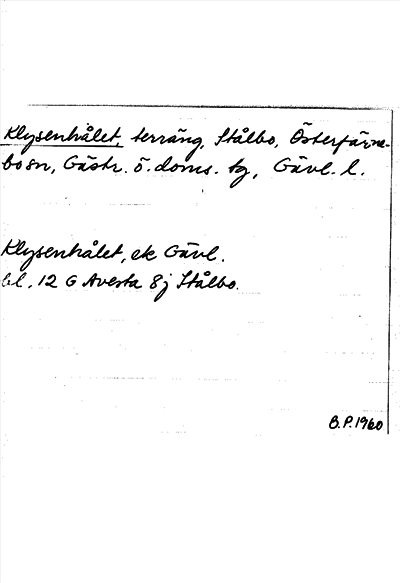 Klysenhålet, terräng, Stålbo, Österfärne-
bo sn, Gästr. ö. doms. tg, Gävl. l.
Klysenhålet, ek Gävl.
bl. 12 G Avesta 8j Stålbo.
B.P. 1960